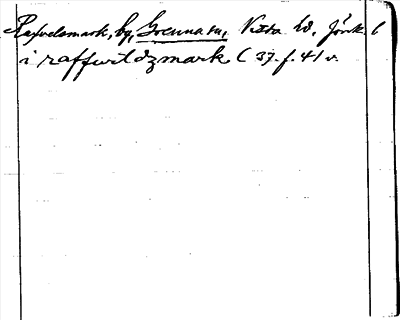 Raxvelsmark, by, Grenna sn, Vista hd, Jönk. l
i raffwildzmark ( 37. f. 41 v.